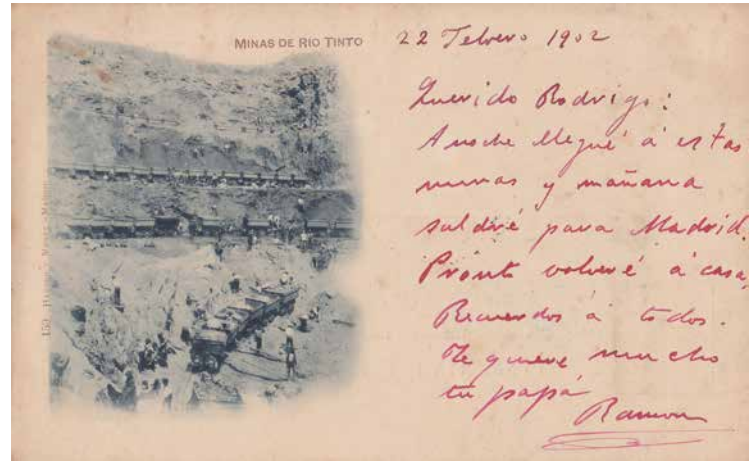 MINAS DE RIO TINTO
22 Febrero 1902
Querido Rodrigo:
Anoche llegué á estas
minas y mañana
saldré para Madrid.
Pronto volveré á casa,
Recuerdos á todos.
Te quiere mucho
tu papá
Ramon
159 Hauser y Menet.-Madrid